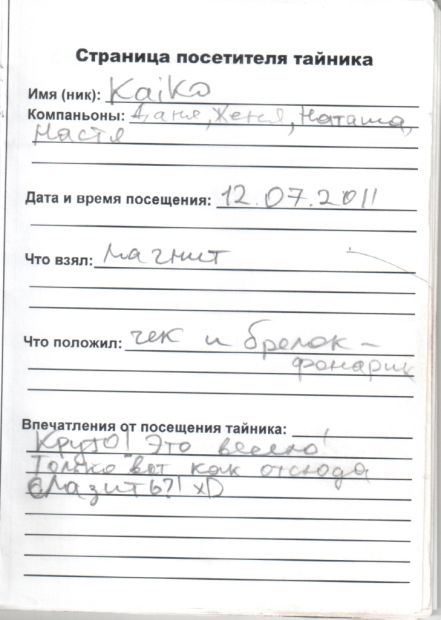 Страница посетителя тайника
Имя (ник): Kaiko
Компаньоны: Даня, Женя, Наташа,
Настя
Дата и время посещения: 12.07.2011
Что взял: магнит
Что положил: чек и брелок-
фонарик
Впечатления от посещения тайника:
Круто! Это весело!
Только вот как отсюда
слазить?! xD